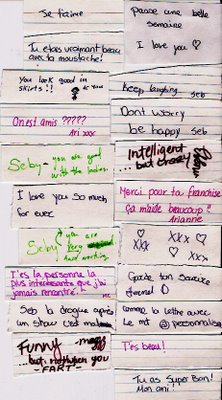 Je t'aime
Tu étais vraiment beau
avec ta moustache!
You look good in
skirts!!
On est amis ?????
Ari xxx
Seby - you are good
with the ladies.
I love you so much
for ever
Seby you are
very
hard working.
T'es la personne la
plus intéressante que j'ai
jamais rencontré!
Seb la drogue après
un show c'est mal
FUNNY
...but not when you
-FART-
Passe une belle
semaine
I love you ♡
Keep laughing Seb
Dont worry
be happy Seb
Intelligent
...but crazy
Merci pour ta franchise
Ça m'aide beaucoup!
Arianne
♡ ♡
xxx xxx
♡
Garde ton sourire
éternel
comme la lettre avec
le mt @ personnalisé
T'es beau!
Tu as Super Bon!
Mon ami!